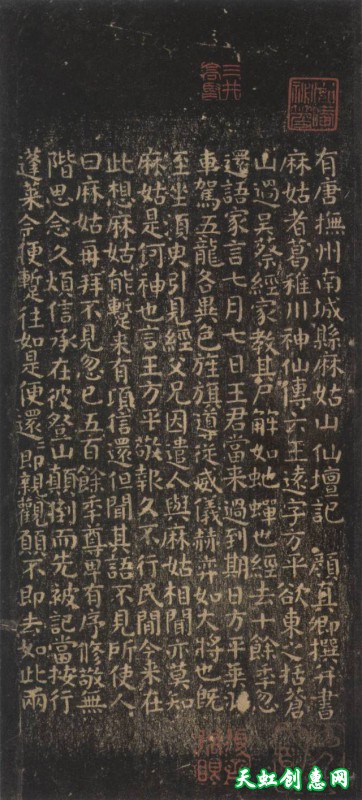 有唐撫州南城縣麻姑山仙壇記 顏真卿撰并書
麻姑者葛稚川神仙傳云王遠字方平欲東之括蒼
山過吳蔡經家教其尸解如虵蟬也經去十餘秊忽
還語家言七月七日王君當来過到期日方平乘羽
車駕五龍各異色旌旗導從威儀赫弈如大將也既
至坐須臾引見經父兄因遣人與麻姑相聞亦莫知
麻姑是何神也言王方平敬報久不行民間今来在
此想麻姑能蹔来有頃信還但聞其語不見所使人
曰麻姑再拜不見忽已五百餘秊尊卑有序修敬無
階思念久煩信承在彼登山顛倒而先被記當按行
蓬萊今便蹔往如是便還即親觀願不即去如此兩
天虹创惠网